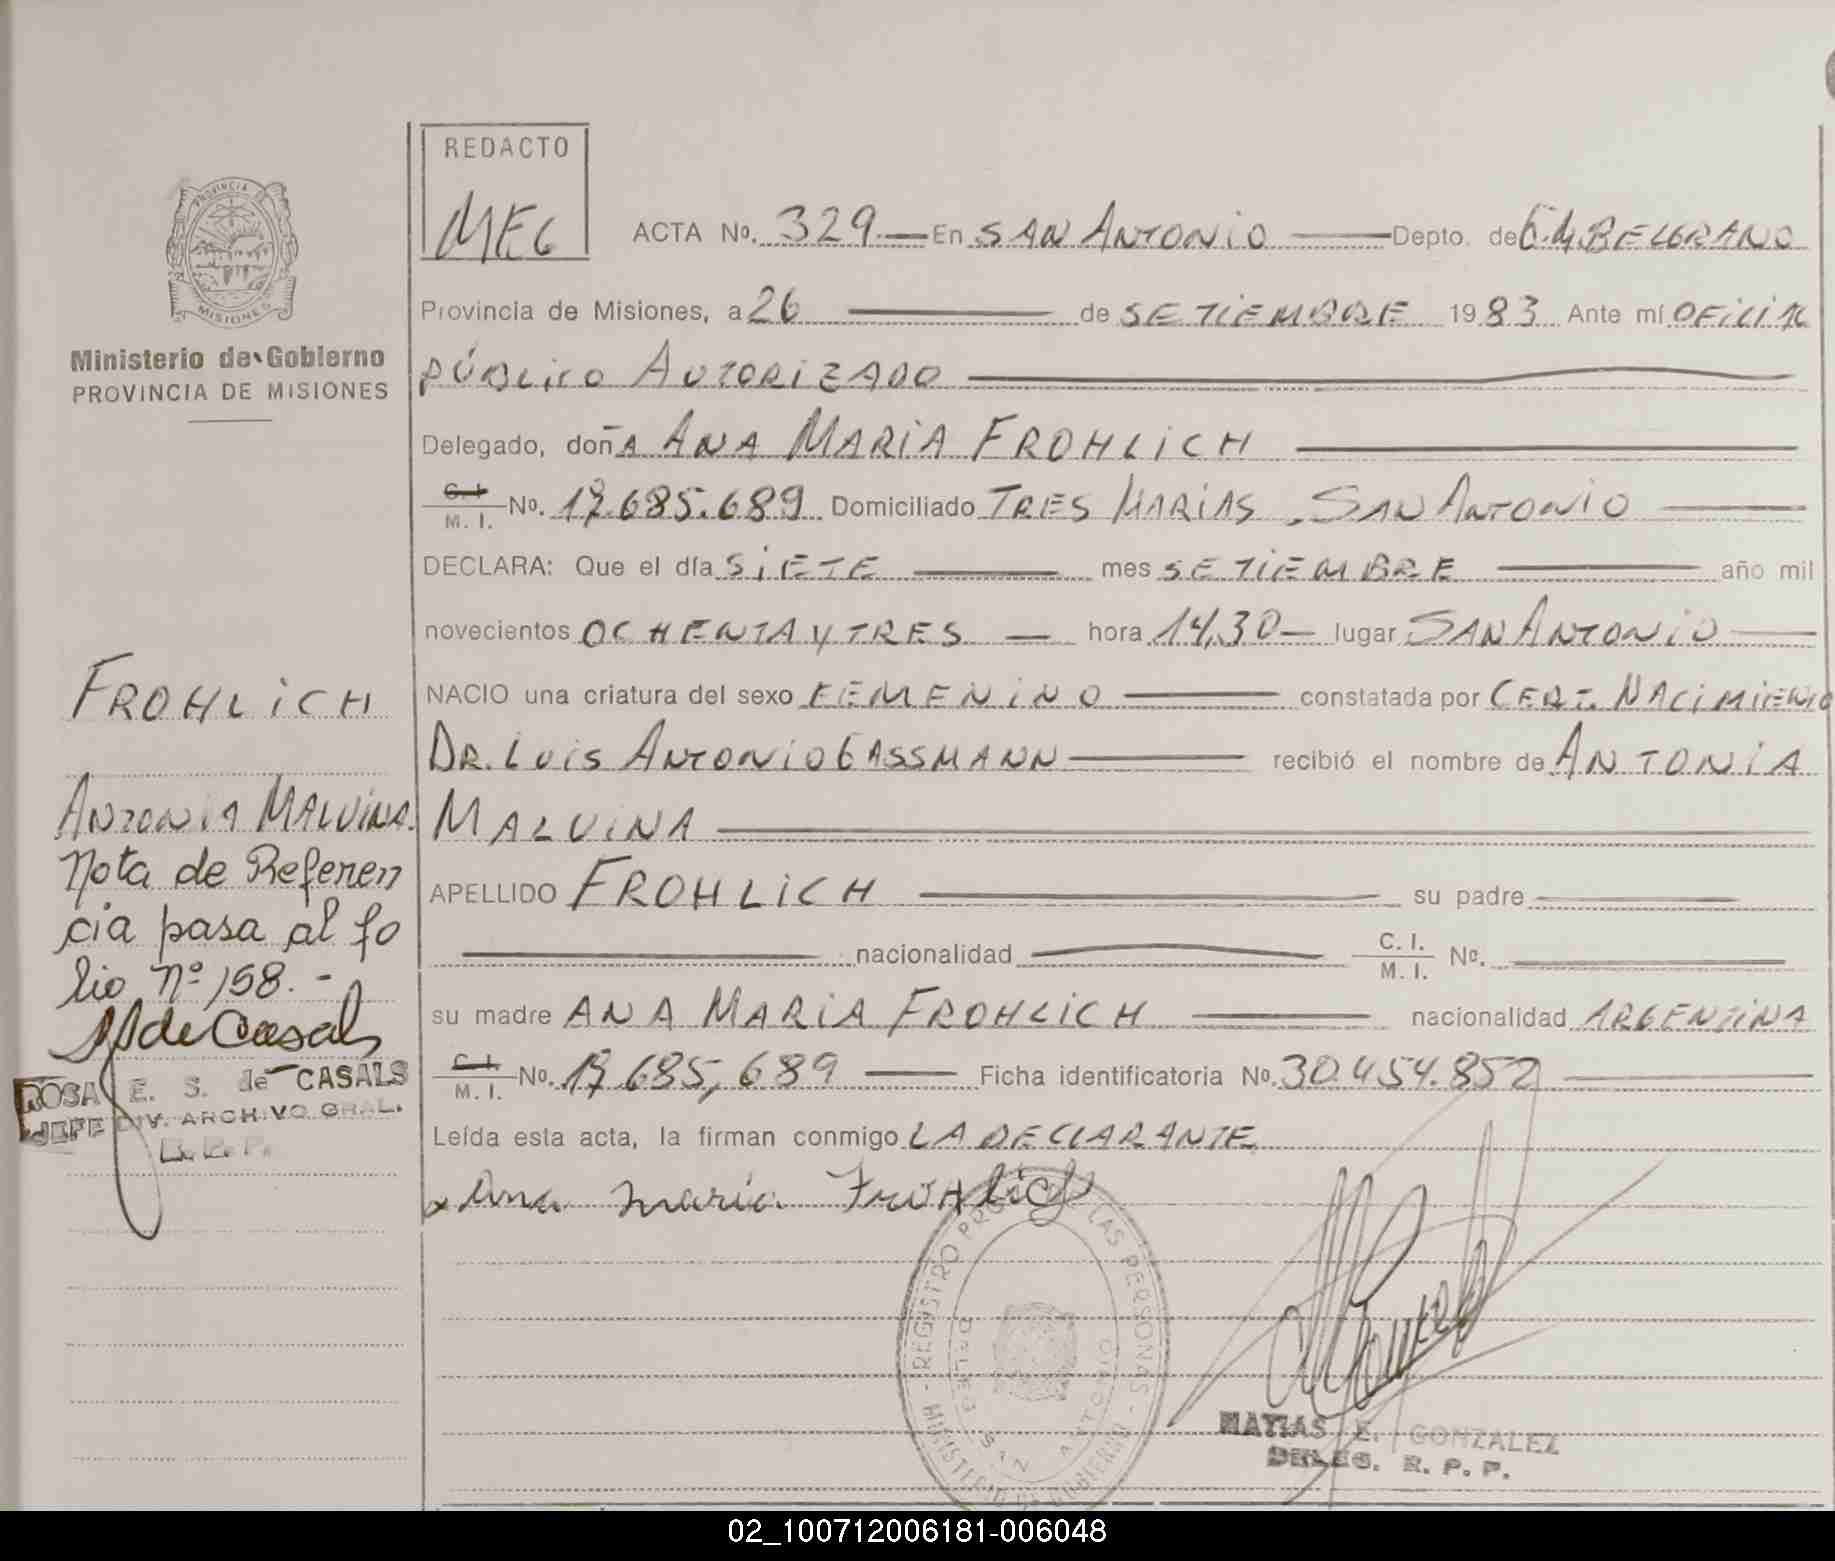 REDACTO
MEG
ACTA No. 329 En SAN ANTONIO Depto. de G. M. BELGRANO
Provincia de Misiones, a 26 de SETIEMBRE 1983 Ante mí OFICIAL
PÚBLICO AUTORIZADO
Delegado, doñA ANA MARIA FROHLICH
C. I. / M. I. No. 17.685.689 Domiciliado TRES MARIAS, SAN ANTONIO
DECLARA: Que el día SIETE mes SETIEMBRE año mil
novecientos OCHENTA Y TRES hora 14,30 lugar SAN ANTONIO
NACIO una criatura del sexo FEMENINO constatada por CERT. NACIMIENTO
DR. LUIS ANTONIO GASSMANN recibió el nombre de ANTONIA
MALVINA
APELLIDO FROHLICH su padre
nacionalidad C. I. / M. I. No.
su madre ANA MARIA FROHLICH nacionalidad ARGENTINA
C. I. / M. I. No. 17.685,689 Ficha identificatoria No. 30.454.852
Leída esta acta, la firman conmigo LA DECLARANTE
x Ana maria FroHlich
REGISTRO PROV. DE LAS PERSONAS - MINISTERIO DE GOBIERNO
SAN ANTONIO
MATIAS E. GONZALEZ
DELEG. R. P. P.
PROVINCIA DE
MISIONES
Ministerio de Gobierno
PROVINCIA DE MISIONES
FROHLICH
ANTONIA MALVINA.
Nota de Referen
cia pasa al fo
lio Nº 158.-
de Casals
ROSA E. S. de CASALS
JEFE DIV. ARCHIVO GRAL.
R. P. P.
02_100712006181-006048